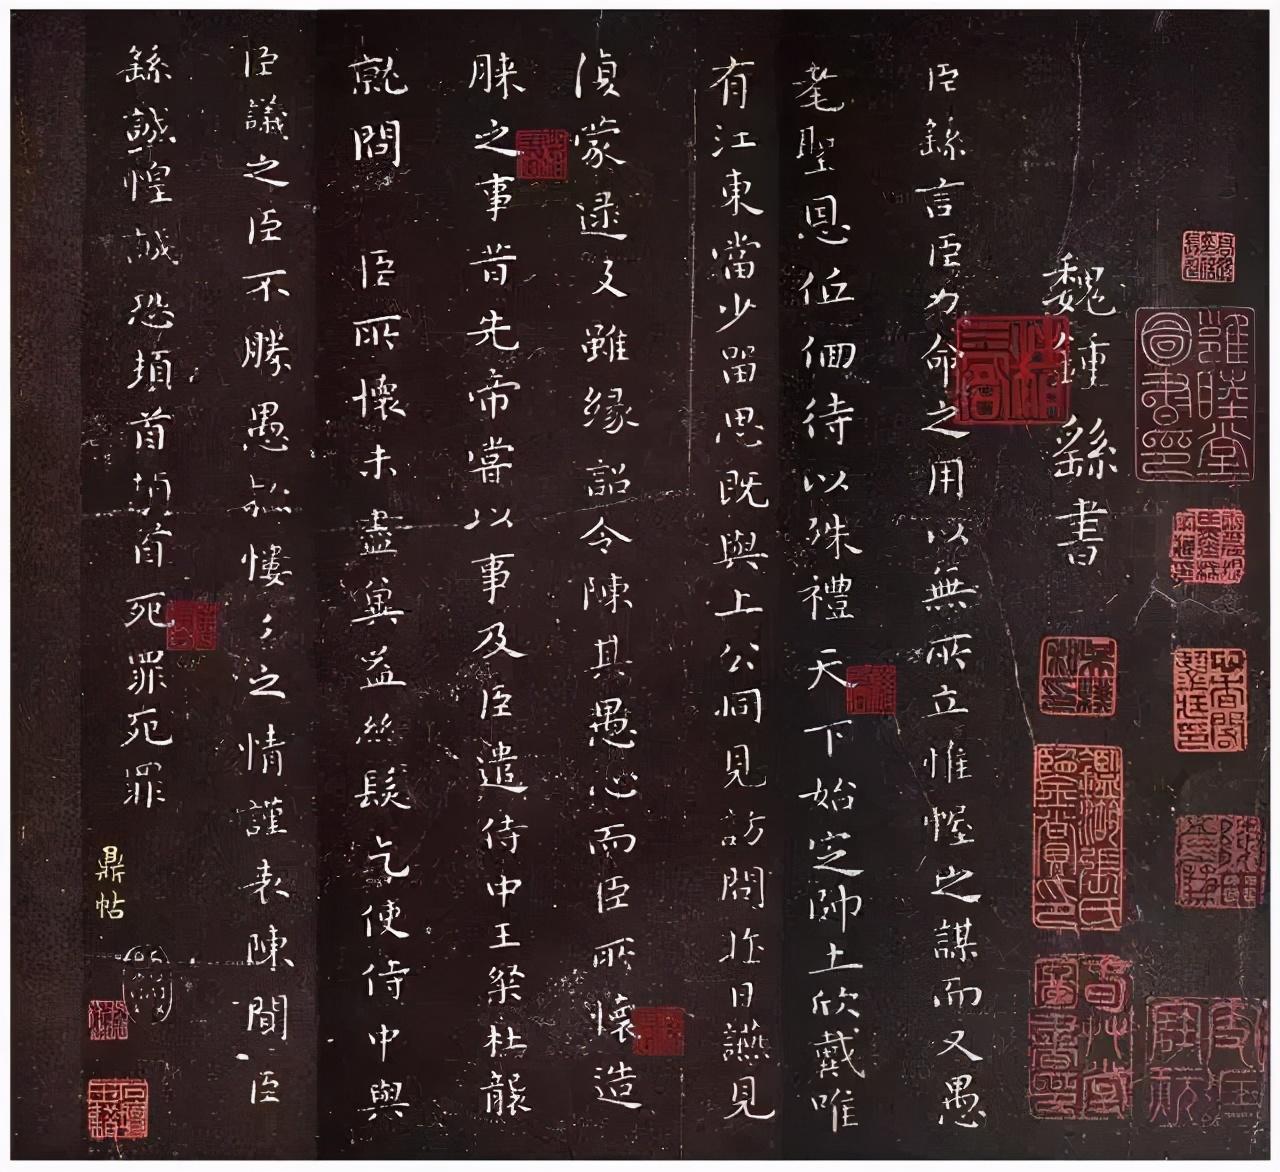 魏鍾繇書
臣繇言臣力命之用以無所立惟幄之謀而又愚
耄聖恩低佪待以殊禮天下始定帥土欣戴唯
有江東當少留思既與上公同見訪問昨日讌見
蒙逮及雖緣詔令陳其愚心而臣所懷造
膝之事昔先帝嘗以事及臣遣侍中王粲杜襲
就問臣所懷未盡冀益絲髮乞使侍中與
臣議之臣不勝愚慺々之情謹表陳聞臣
繇誠惶誠恐頓首頓首死罪死罪
鼎帖